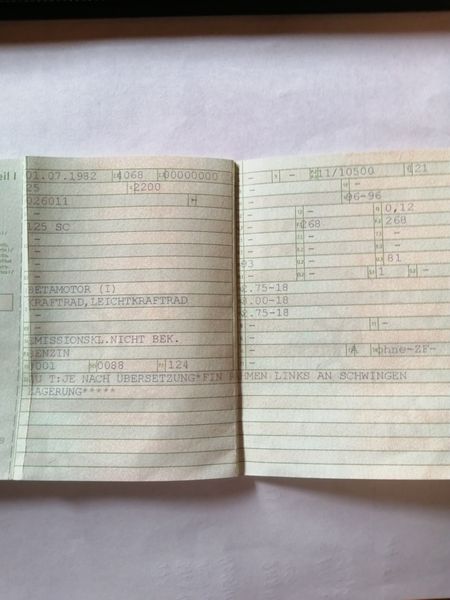 01.07.1982 4068 00000000 - - 11/10500 21
25 2200 -
026011 - 96-96
- - 0,12
125 SC - 268 268
- - -
- - -
- 93 - 81
- - 1 -
BETAMOTOR (I) 2.75-18
KRAFTRAD,LEICHTKRAFTRAD 3.00-18
- 2.75-18
- - -
EMISSIONSKL.NICHT BEK. -
BENZIN - A ohne-ZF-
0001 0088 124 -
ZU T:JE NACH ÜBERSETZUNG*FIN RAHMEN LINKS AN SCHWINGEN
LAGERUNG*****